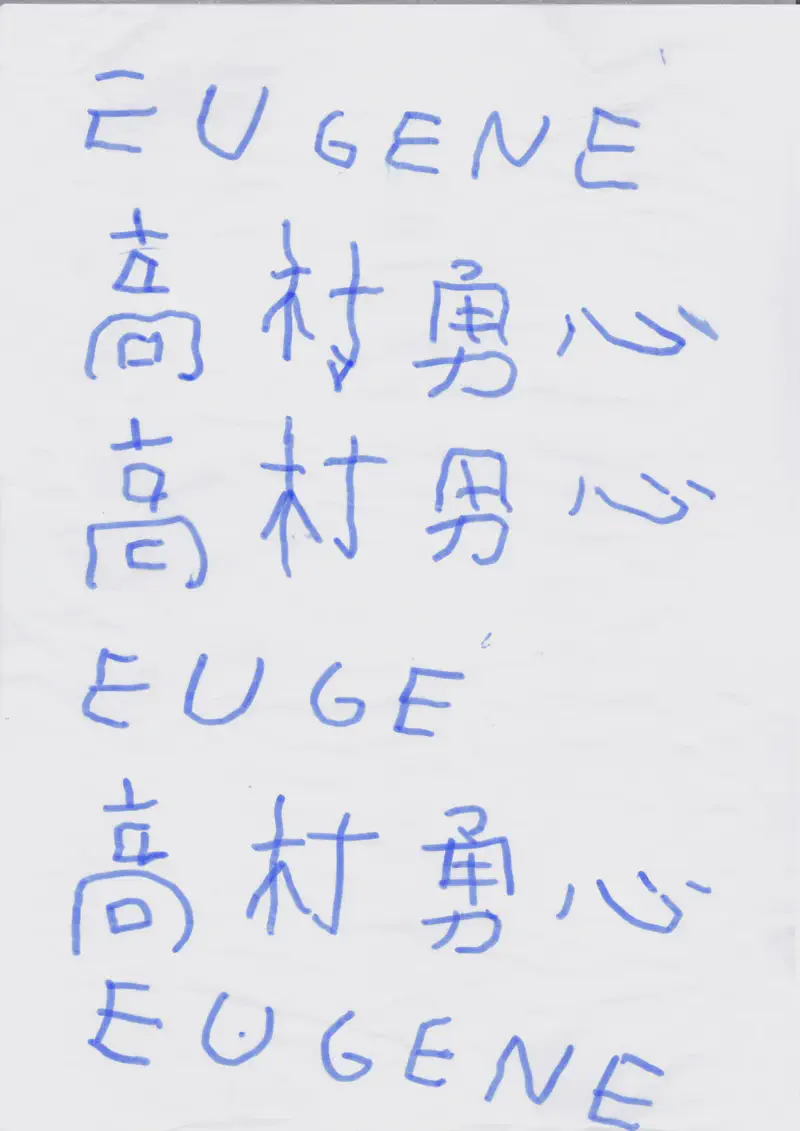 EUGENE
高村勇心
高村男心
EUGE
高村勇心
EUGENE